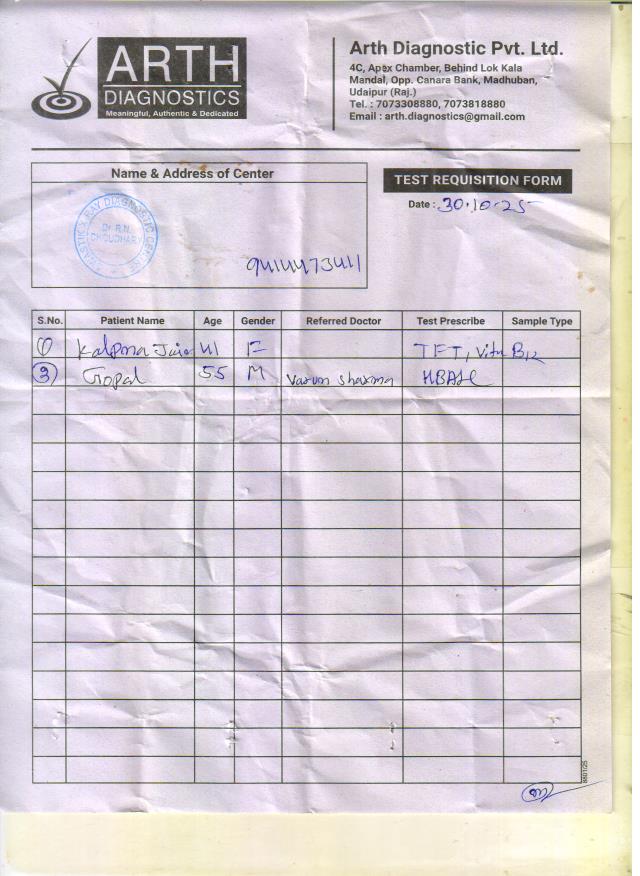 ARTH
DIAGNOSTICS
Meaningful, Authentic & Dedicated
Arth Diagnostic Pvt. Ltd.
4C, Apex Chamber, Behind Lok Kala
Mandal, Opp. Canara Bank, Madhuban,
Udaipur (Raj.)
Tel. : 7073308880, 7073818880
Email : arth.diagnostics@gmail.com
Name & Address of Center
TEST REQUISITION FORM
Date : 30.10.25
X-RAY DIAGNOSTIC CENTRE
Dr. R.N.
CHOUDHARY
9414473411
S.No. Patient Name Age Gender Referred Doctor Test Prescribe Sample Type
1 Kalpna Jain 41 F TFT, Vitn B12
Gopal 55 M Varun Sharma HBA1c
8601/25